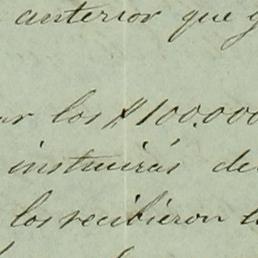 anterior que
los $100.000
instruirás de
los recibieron